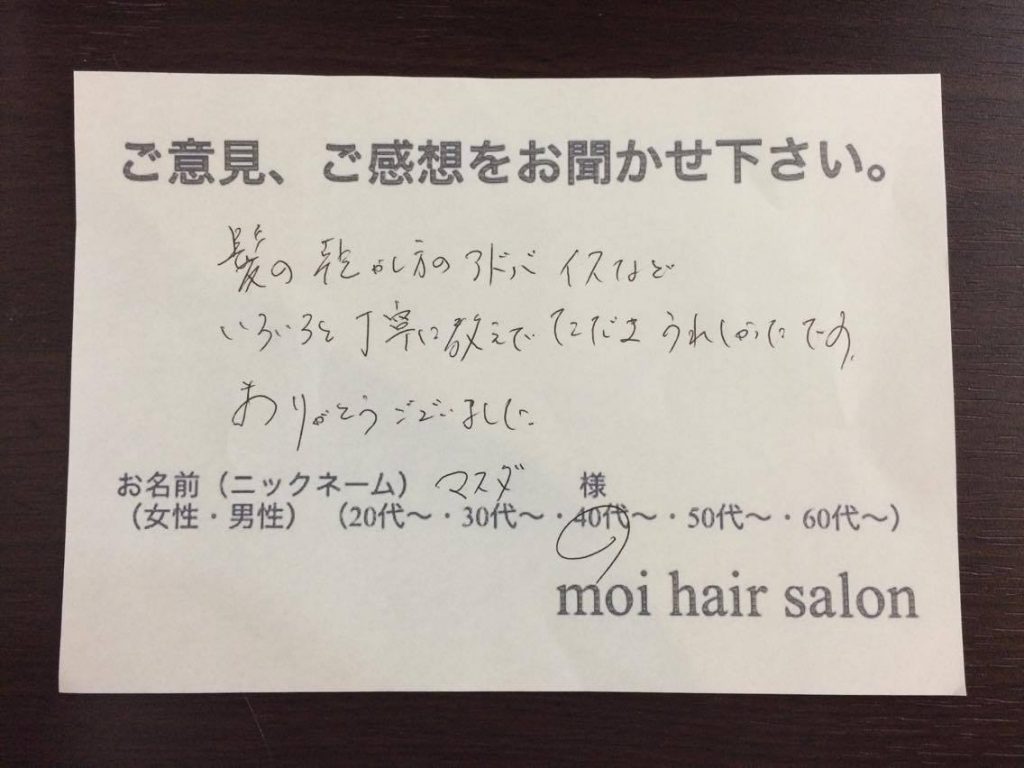 ご意見、ご感想をお聞かせ下さい。
髪の乾かし方のアドバイスなど
いろいろと丁寧に教えて ただき うれしかったです。
ありがとうございました。
お名前（ニックネーム） マスダ 様
（女性・男性） （20代〜・30代〜・40代〜・50代〜・60代〜）
moi hair salon